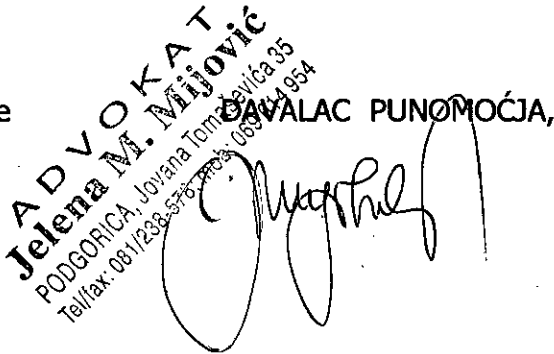 e
DAVALAC PUNOMOĆJA,
ADVOKAT
Jelena M. Mijović
PODGORICA, Jovana Tomaševića 35
Tel/fax: 081/238-578, mob: 954